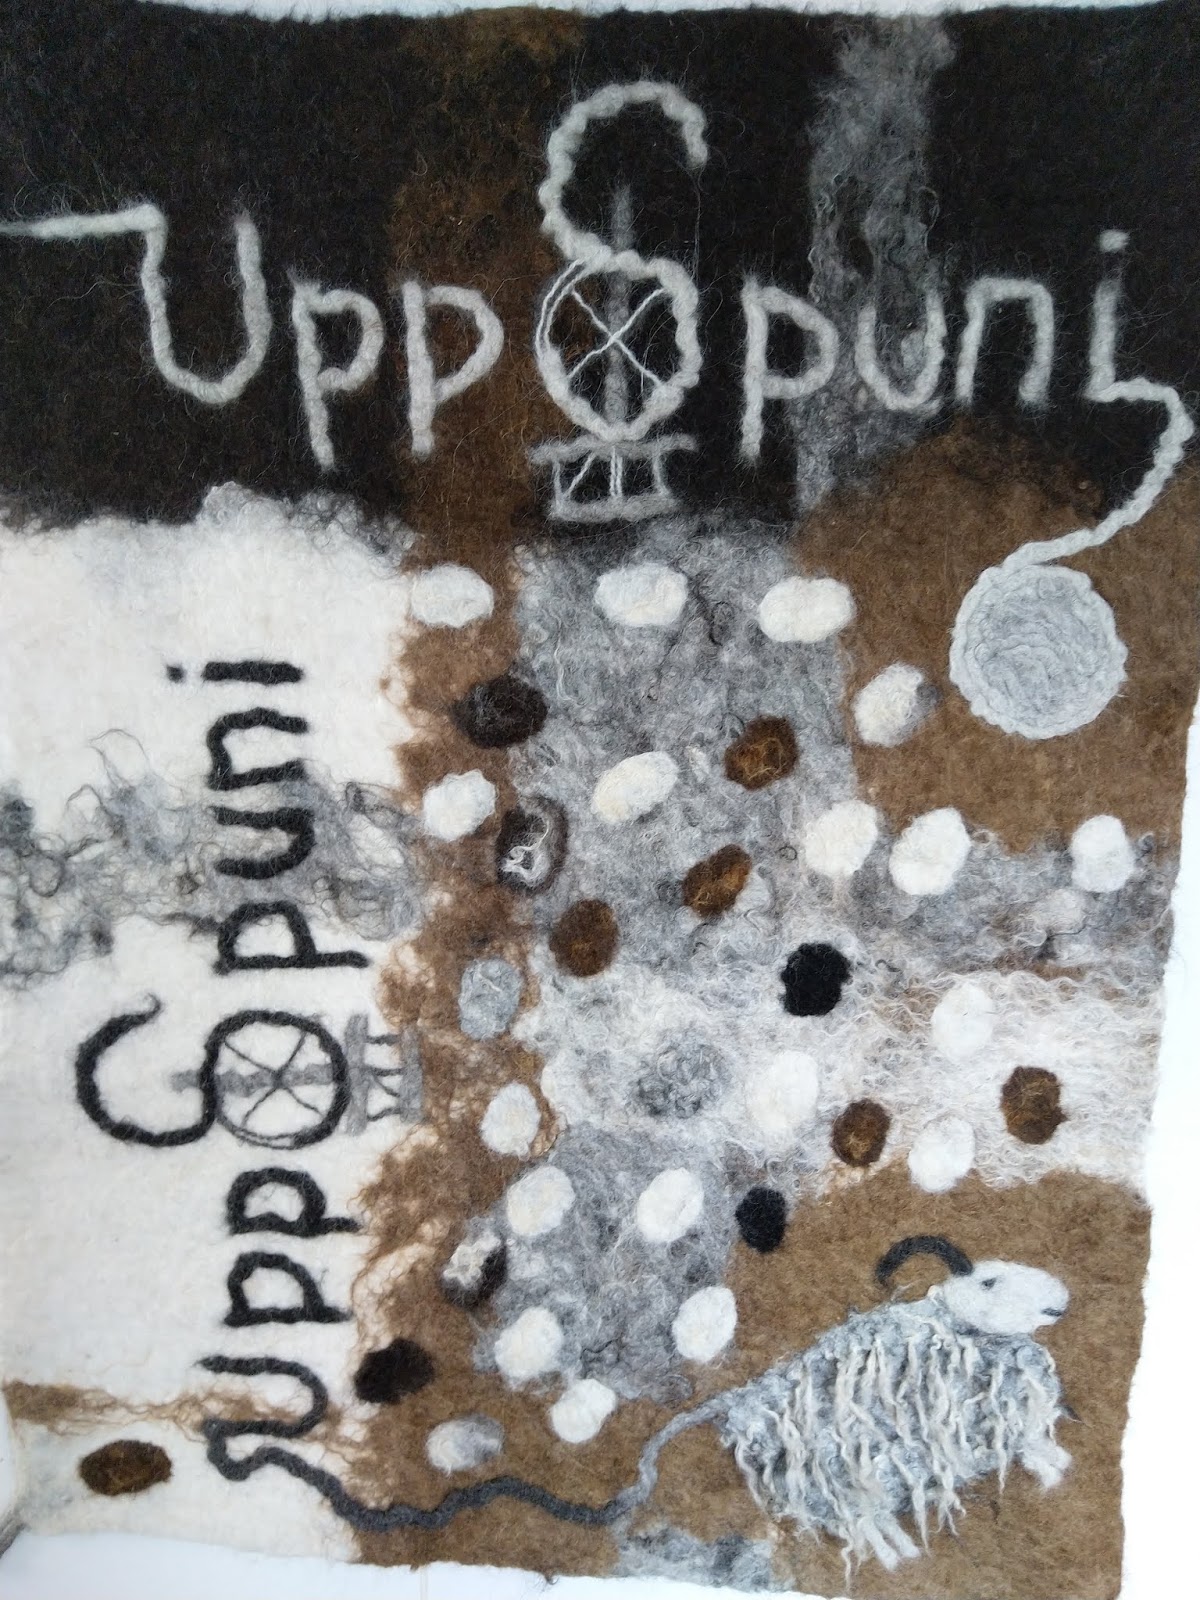 UppSpuni
UppSpuni